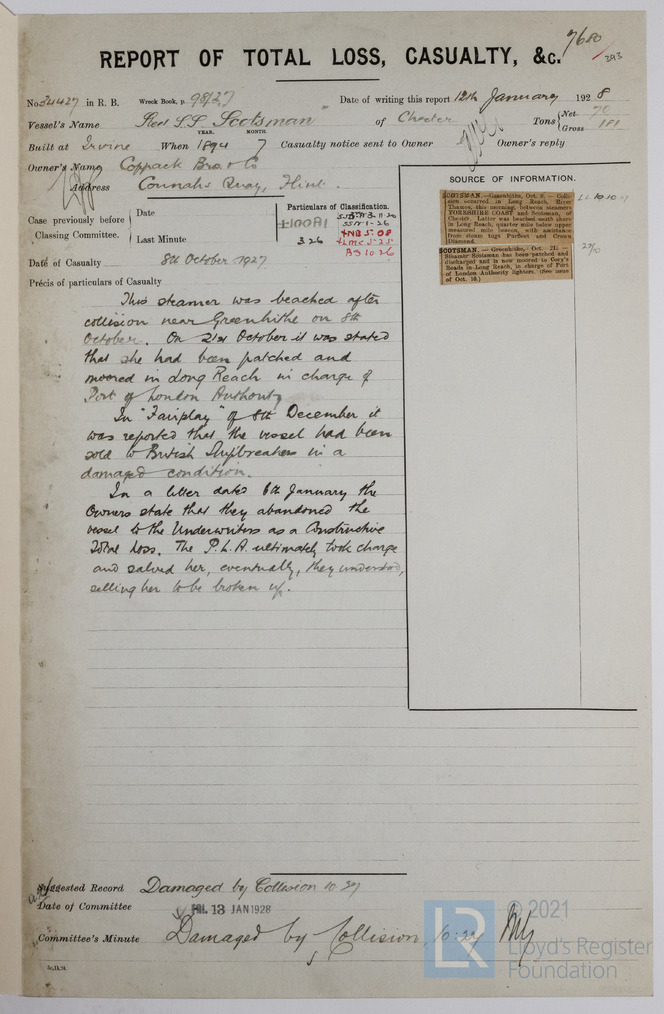 7680
/293
REPORT OF TOTAL LOSS, CASUALTY, &c.
No. 34427 in R. B. Wreck Book, p. 98/27 Date of writing this report 12th January 1928
Vessel's Name Steel S.S. "Scotsman" of Chester Tons { Net 70
Gross 181
YEAR. MONTH.
Built at Irvine When 1894 7 Casualty notice sent to Owner Owner's reply
Owner's Name Coppack Bros. & Co
Address Connah's Quay, Flint.
SOURCE OF INFORMATION.
Case previously before
Classing Committee.
Date
Last Minute
Particulars of Classification.
+100A1
3 26
SS No 3-11-20
SS No 1-26
+NB 5.08
+LMC 5.25
BS 10.26
SCOTSMAN.—Greenhithe, Oct. 8.—Collision
occurred in Long Reach, River
Thames, this morning, between steamers
YORKSHIRE COAST and Scotsman, of
Chester. Latter was beached south shore
in Long Reach, quarter mile below upper
measured mile beacon, with assistance
from steam tugs Purfleet and Crown
Diamond.
LL 10.10.27
SCOTSMAN. — Greenhithe, Oct. 21.—
Steamer Scotsman has been patched and
discharged and is now moored to Gory's
Roads in Long Reach, in charge of Port
of London Authority lighters. (See issue
of Oct. 10.)
Date of Casualty 8th October 1927
Précis of particulars of Casualty
This steamer was beached after
collision near Greenhithe on 8th
October. On 21st October it was stated
that she had been patched and
moored in Long Reach in charge of
Port of London Authority
In "Fairplay" of 8th December it
was reported that the vessel had been
sold to British Shipbreakers in a
damaged condition.
In a letter dated 6th January the
Owners state that they abandoned the
vessel to the Underwriters as a Constructive
Total Loss. The P.L.A. ultimately took charge
and salved her, eventually, they understood,
selling her to be broken up.
Suggested Record Damaged by Collision 10.27
Date of Committee FRI. 13 JAN 1928
Committee's Minute Damaged by Collision, 10.27
© 2021
LR
Lloyd's Register
Foundation